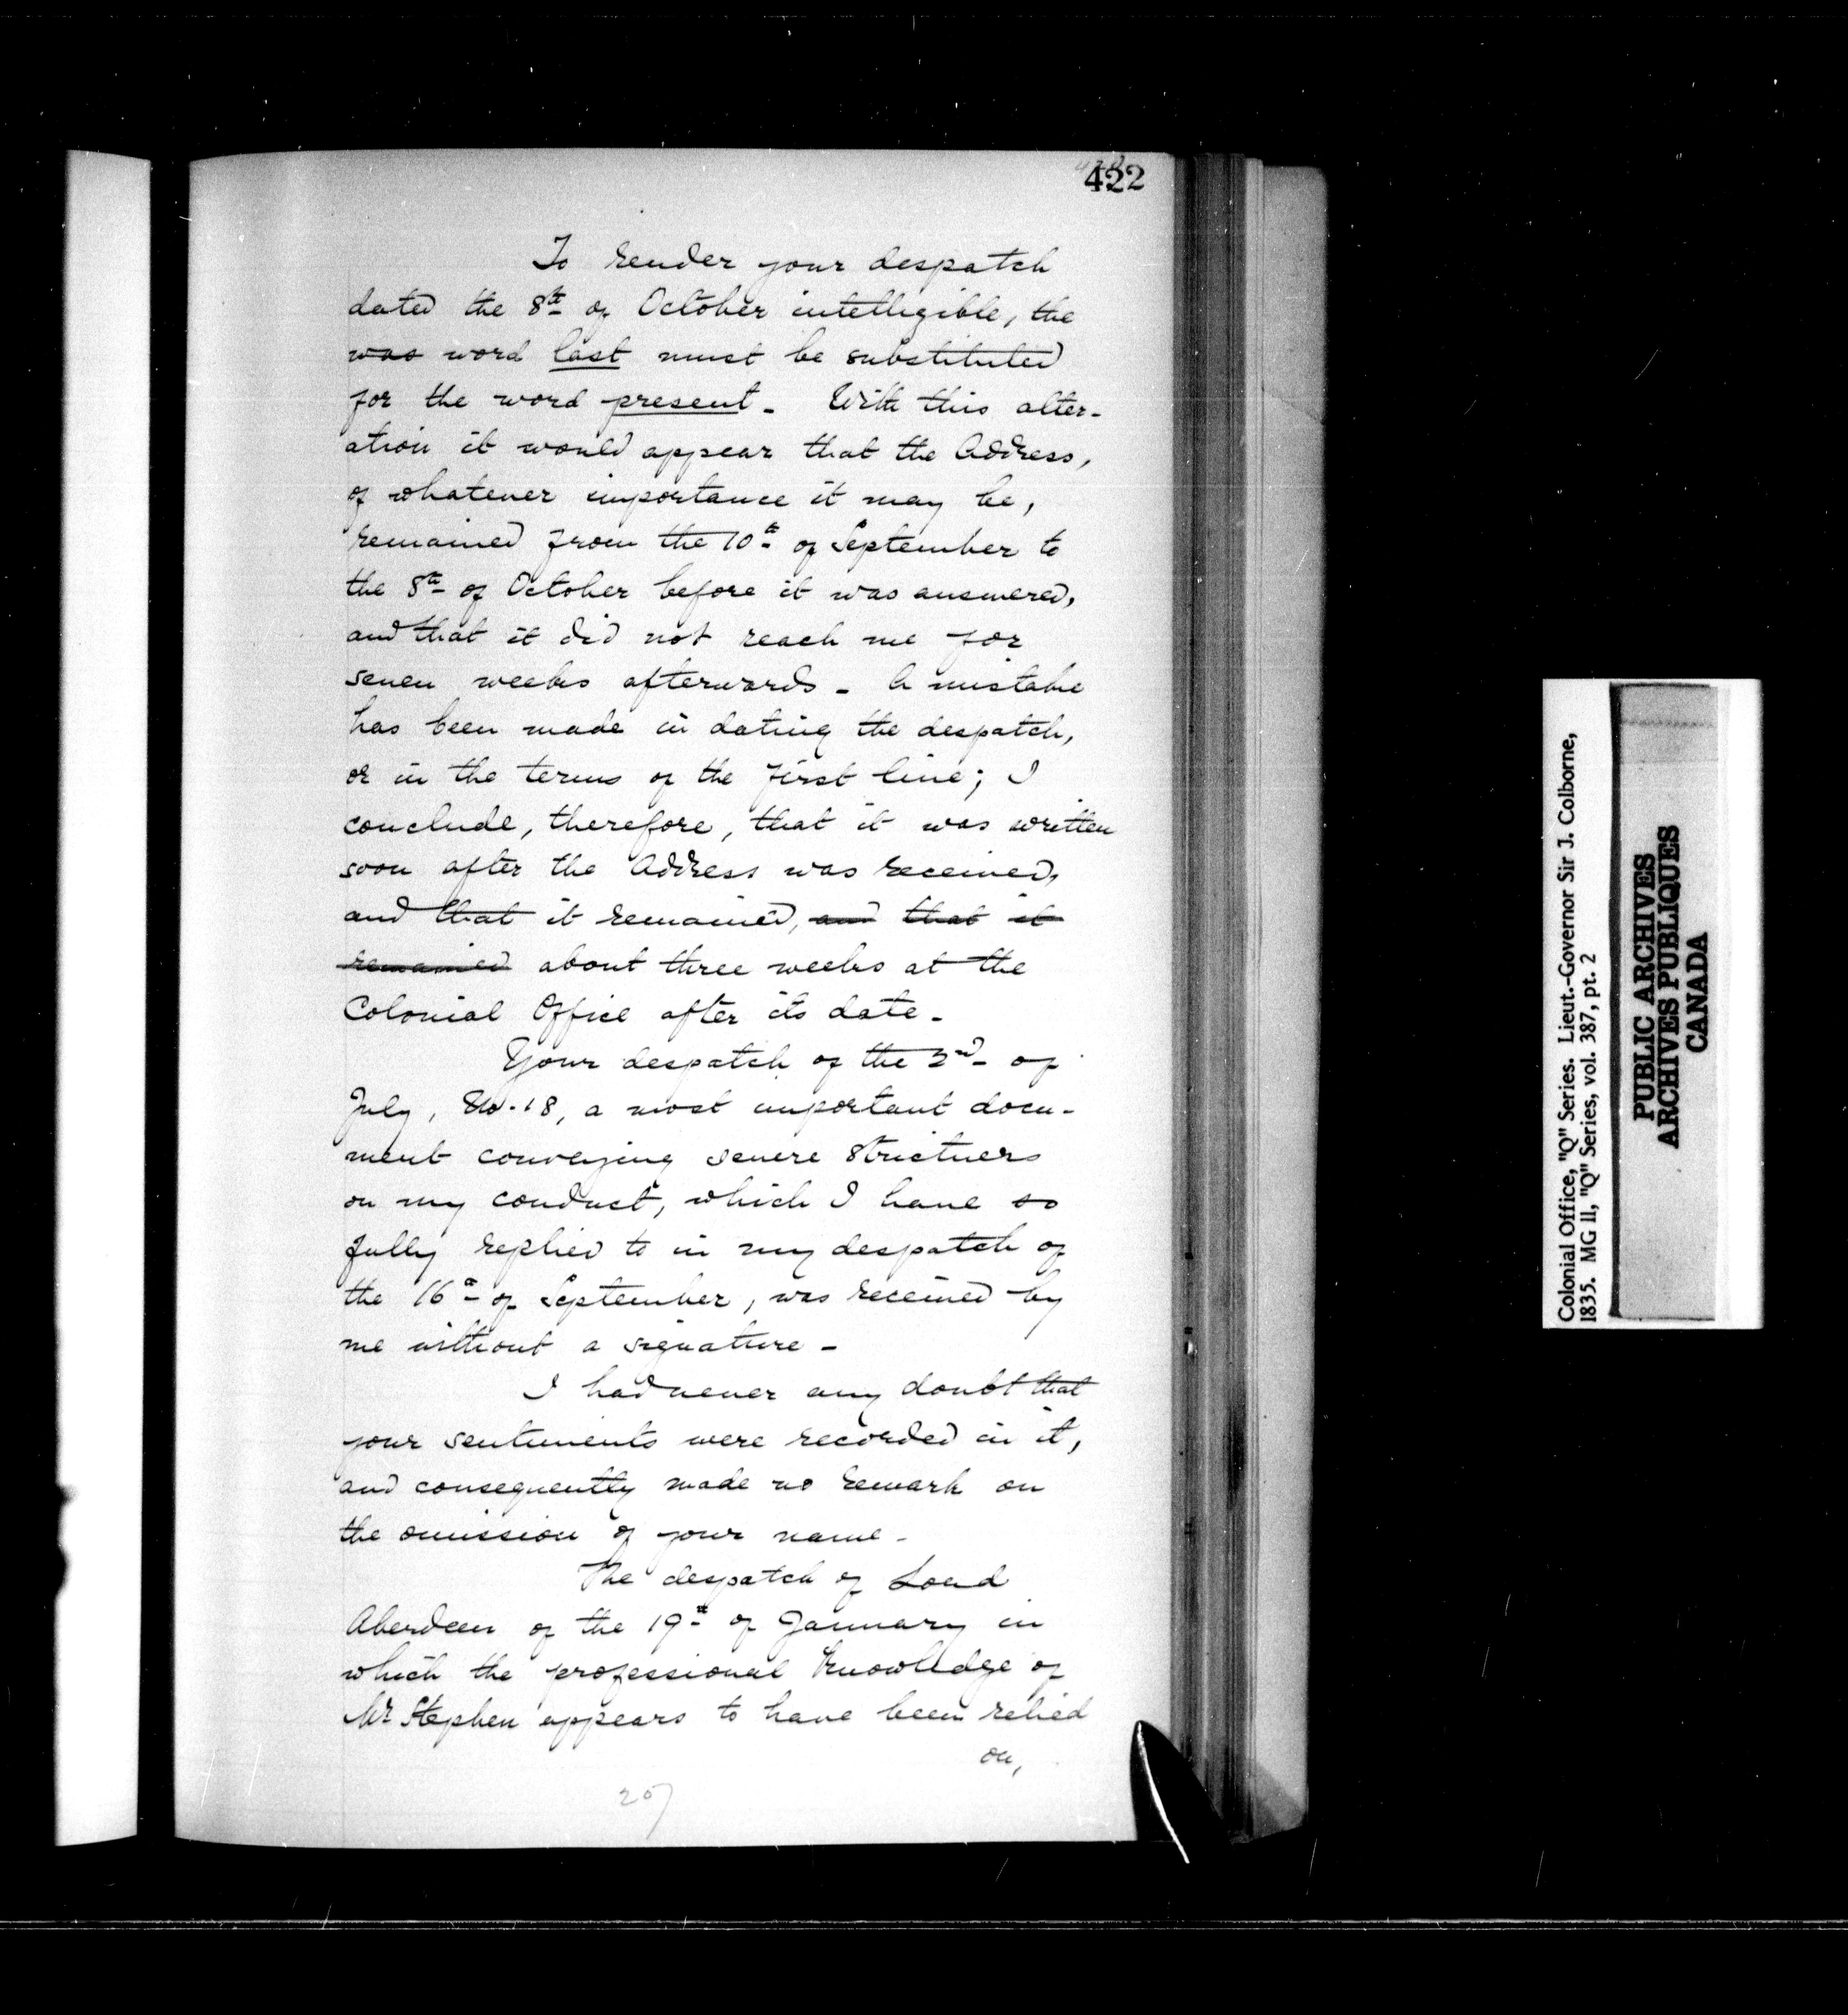 422
To render your despatch
dated the 8th of October intelligible, the
was word last must be substituted
for the word present - With this alter-
ation it would appear that the Address,
of whatever importance it may be,
remained from the 10th of September to
the 8th of October before it was answered,
and that it did not reach me for
seven weeks afterwards - A mistake
has been made in dating the despatch,
or in the terms of the first line; I
conclude, therefore, that it was written
soon after the Address was received,
and that it remained, and that it
remained about three weeks at the
Colonial Office after its date -
Your despatch of the 2nd of
July, No. 18, a most important docu-
ment conveying severe strictures
on my conduct, which I have so
fully replied to in my despatch of
the 16th of September, was received by
me without a signature -
I had never any doubt that
your sentiments were recorded in it,
and consequently made no remark on
the omission of your name -
The despatch of Lord
Aberdeen of the 19th of January in
which the professional knowledge of
Mr Stephen appears to have been relied
on,
207
Colonial Office, "Q" Series. Lieut.-Governor Sir J. Colborne,
1835. MG 11, "Q" Series, vol. 387, pt. 2
PUBLIC ARCHIVES
ARCHIVES PUBLIQUES
CANADA